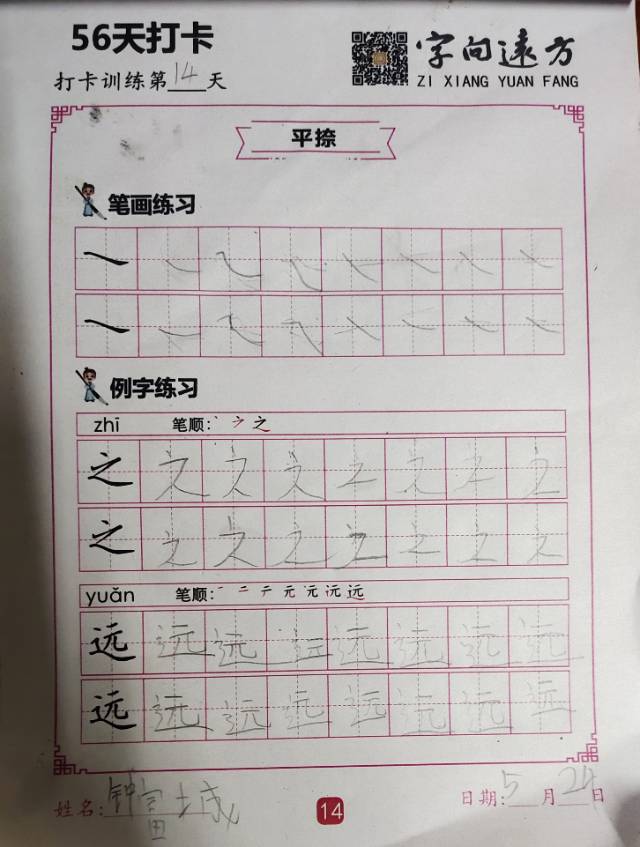 56天打卡
字向远方
打卡训练第14天
ZI XIANG YUAN FANG
平捺
笔画练习
例字练习
zhī 笔顺: 丶 ㇇ 之
之 之 之 之 之 之 之 之
之 之 之 之 之 之 之 之
yuǎn 笔顺: 一 二 テ 元 元 沅 远
远 远 远 远 远 远 远 远
远 远 远 远 远 远 远 远
姓名: 钟富城
14
日期: 5月24日